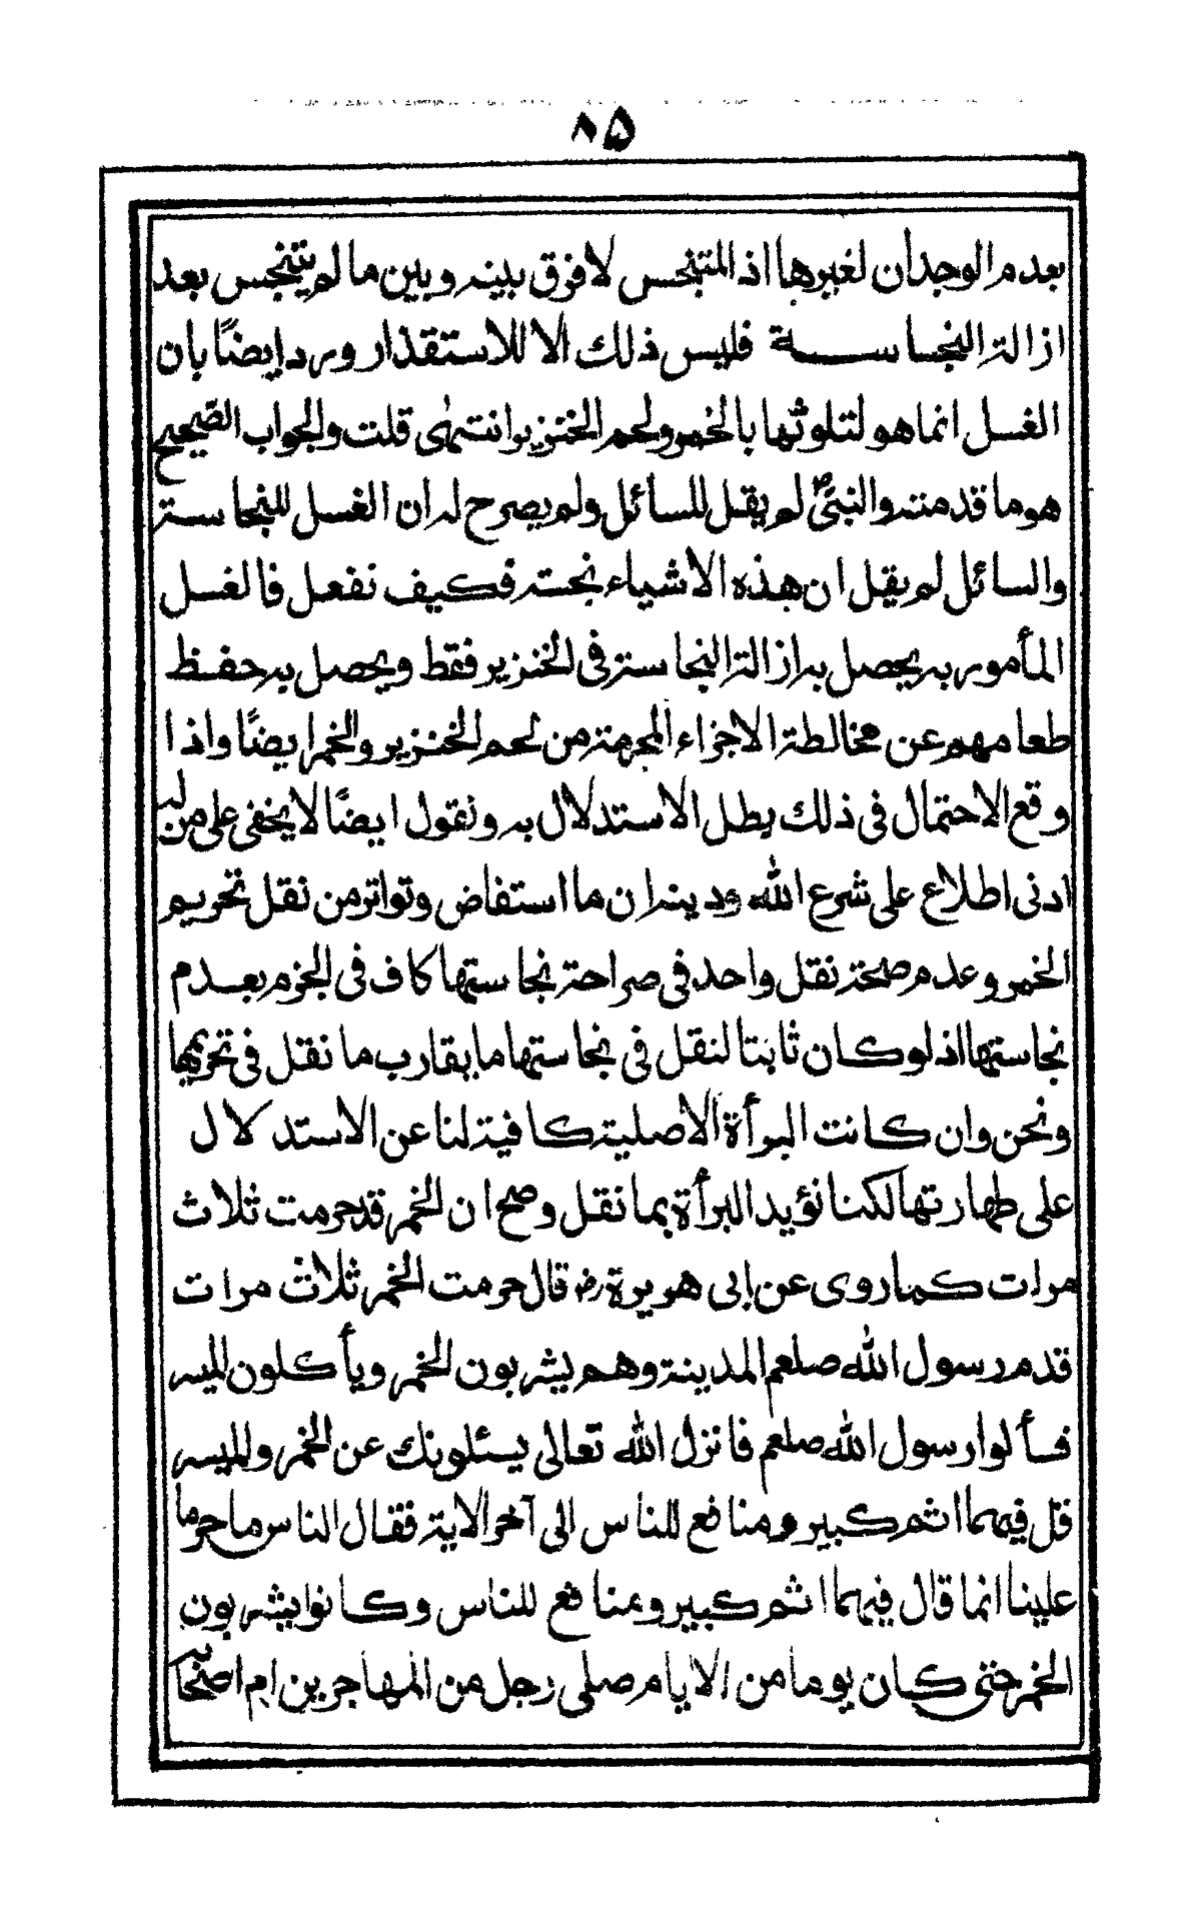 ٨٥
بعدم الوجدان لغيرها اذ المتنجس لا فرق بينه وبين ما لم يتنجس بعد
ازالة النجاسة فليس ذلك الا للاستقذار ويرد ايضًا بان
الغسل انما هو لتلوثها بالخمر ولحم الخنزير انتهى قلت والجواب الصحيح
هو ما قدمته والنبيؐ لم يقل للسائل ولم يصرح له ان الغسل للنجاسة
والسائل لم يقل ان هذه الاشياء نجسة فكيف نفعل فالغسل
المأمور به يحصل به ازالة النجاسة في الخنزير فقط ويحصل به حفظ
طعامهم عن مخالطة الاجزاء المحرمة من لحم الخنزير والخمر ايضًا واذا
وقع الاحتمال في ذلك بطل الاستدلال به ونقول ايضًا لا يخفى على من له
ادنى اطلاع على شرع الله ودينه ان ما استفاض وتواتر من نقل تحريم
الخمر وعدم صحة نقل واحد في صراحة نجاستها كاف في الجزم بعدم
نجاستها اذ لو كان ثابتا لنقل في نجاستها ما يقارب ما نقل في تحريمها
ونحن وان كانت البرأة الاصلية كافية لنا عن الاستدلال
على طهارتها لكنا نؤيد البرأة بما نقل وصح ان الخمر قد حرمت ثلاث
مرات كما روى عن ابى هريرة رض قال حرمت الخمر ثلاث مرات
قدم رسول الله صلعم المدينة وهم يشربون الخمر ويأكلون الميسر
فسألوا رسول الله صلعم فانزل الله تعالى يسئلونك عن الخمر والميسر
قل فيهما اثم كبير ومنافع للناس الى آخر الاية فقال الناس ما حرما
علينا انما قال فيهما اثم كبير ومنافع للناس وكانوا يشربون
الخمر حتى كان يوما من الايام صلى رجل من المهاجرين ام اصحابه